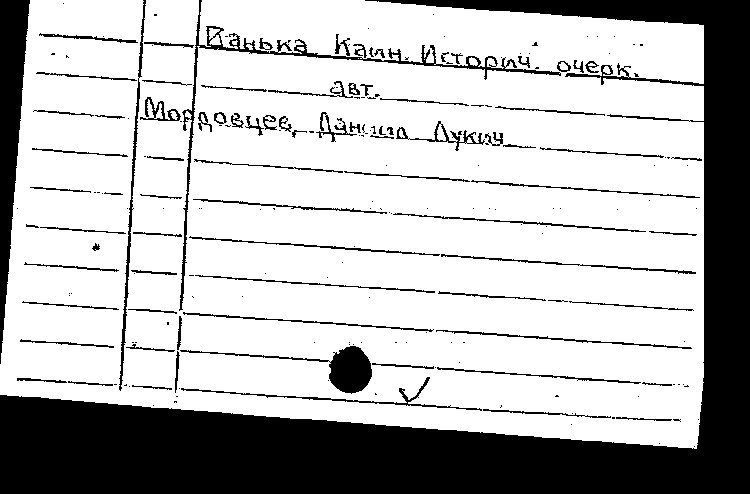 Ванька Каин. Историч. очерк.
авт.
Мордовцев, Данила Лукич